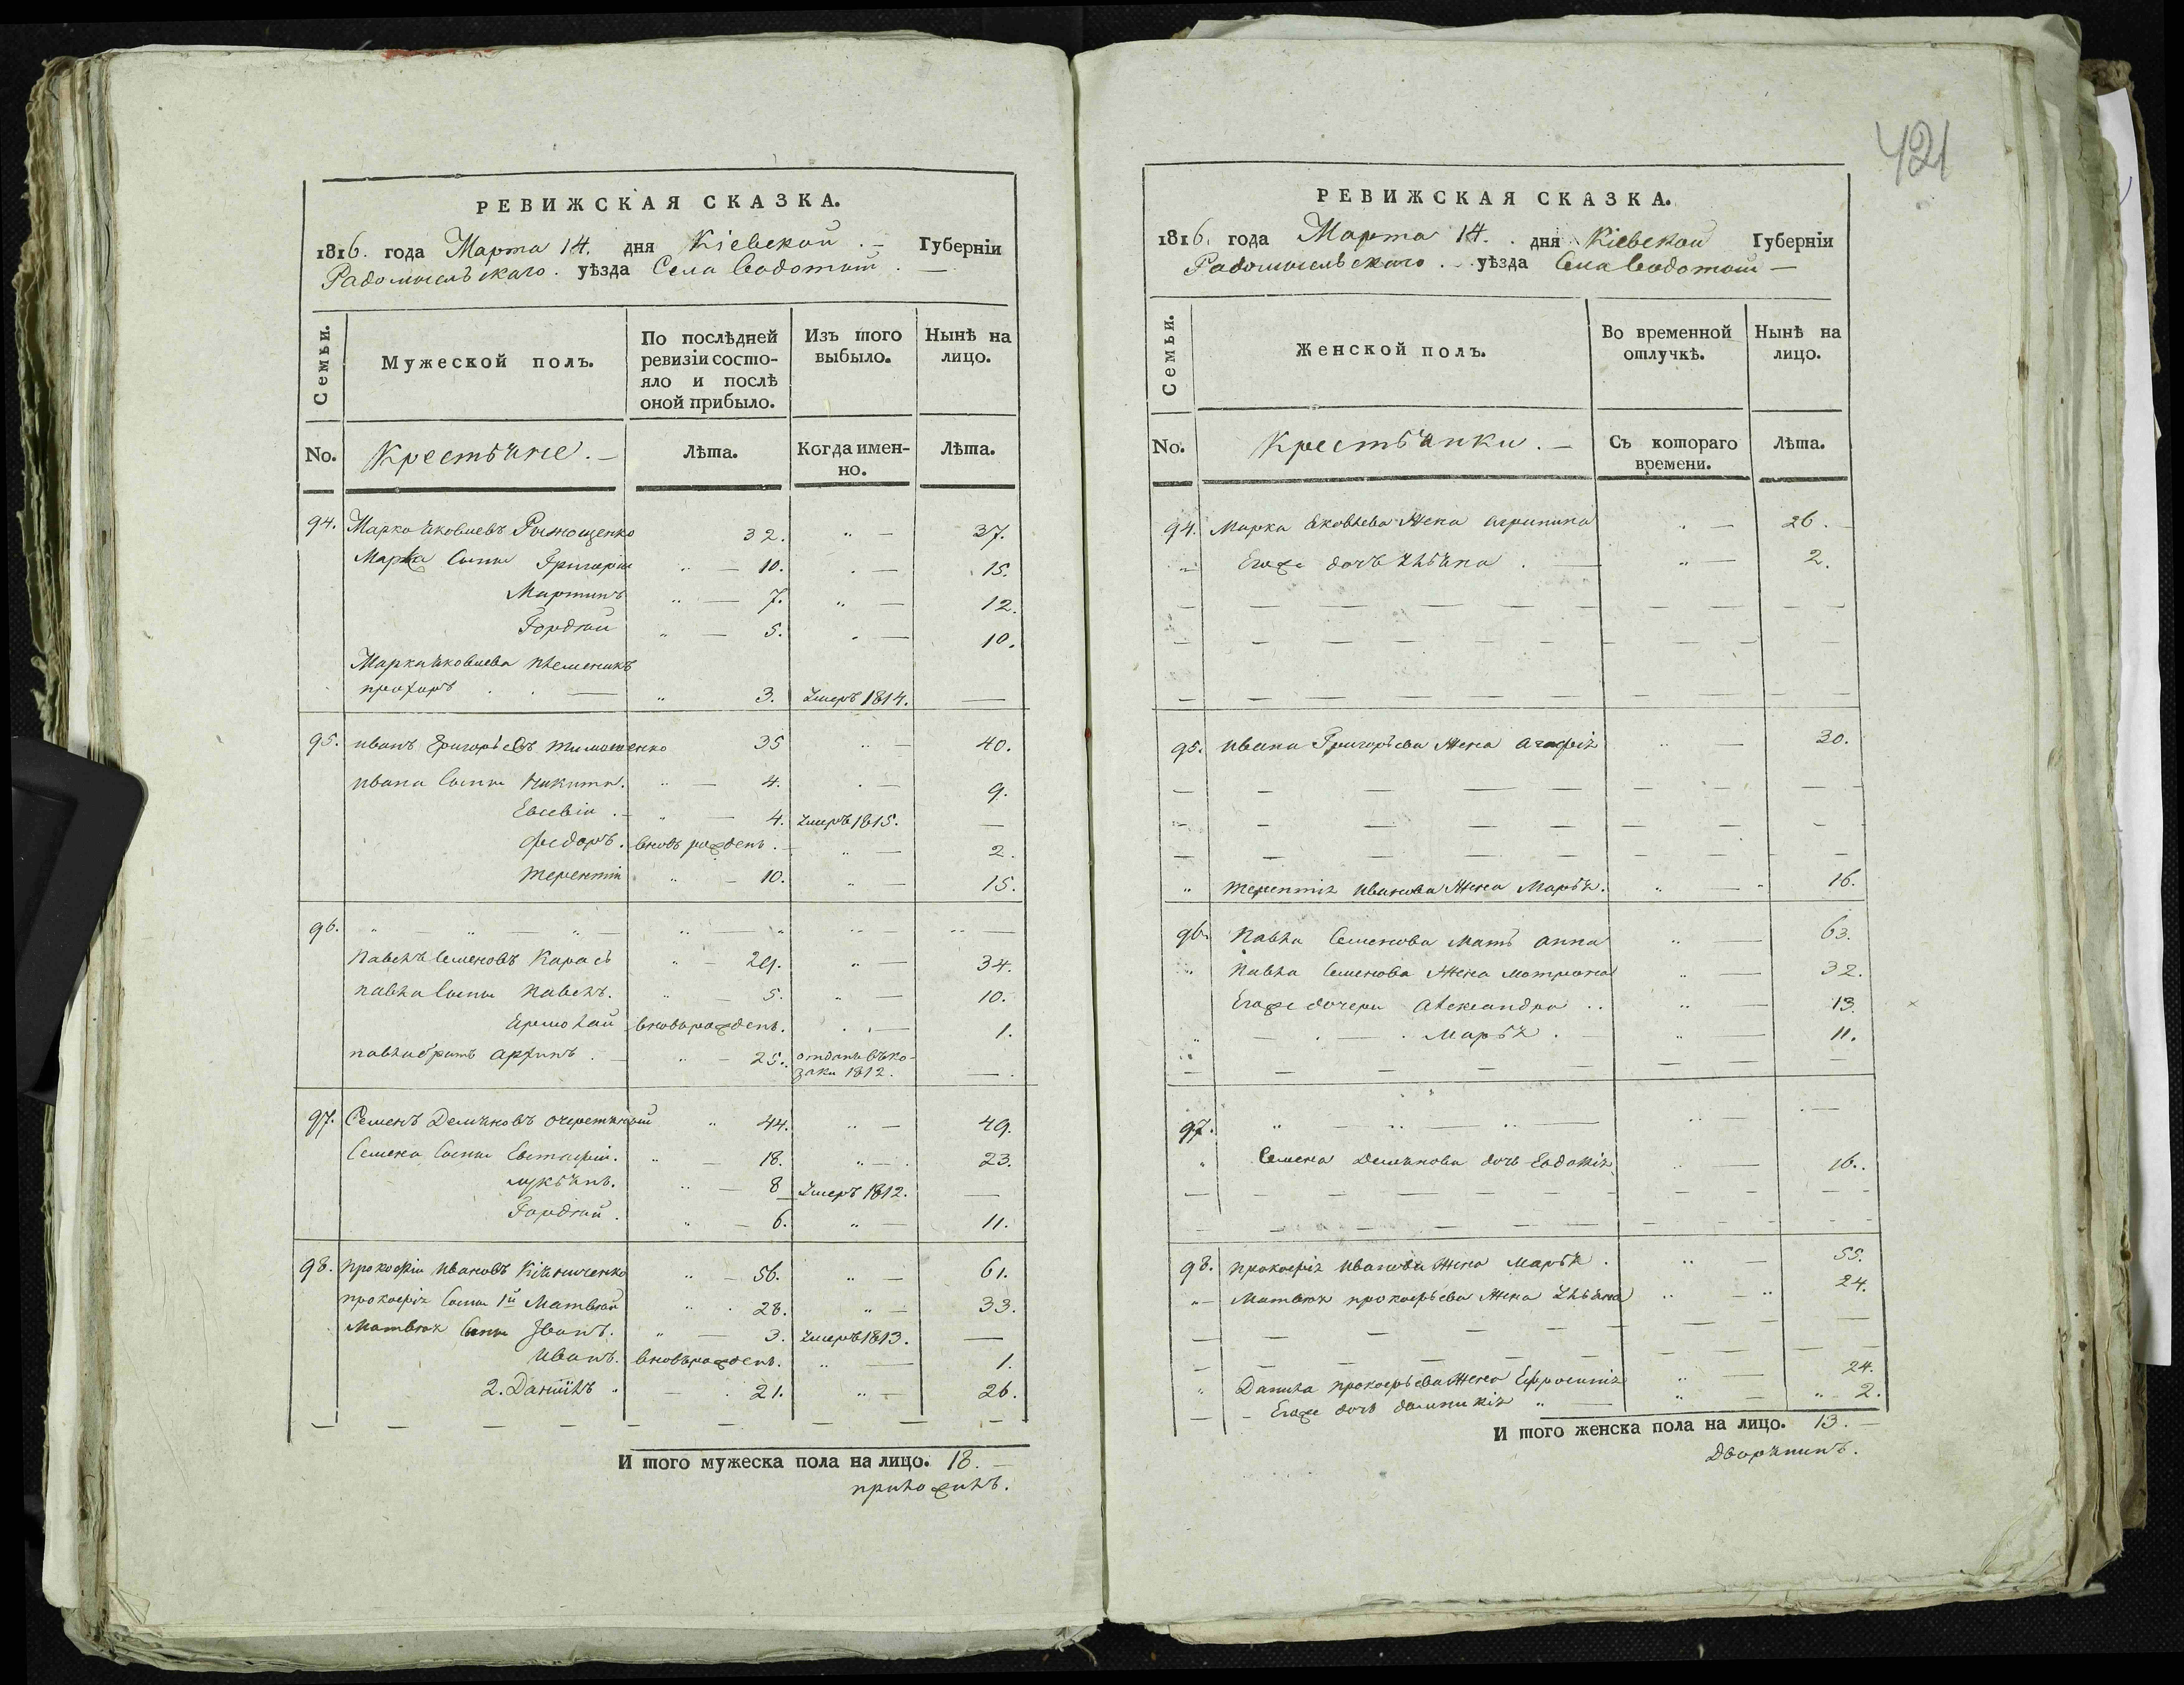 421
РЕВИЖСКАЯ СКАЗКА.
1816. года Марта 14. дня Кіевской Губерніи
Радомысльскаго уѣзда Села Водотый
Семьи.
Мужеской полъ.
По послѣдней ревизіи состояло и послѣ оной прибыло.
Изъ того выбыло.
Нынѣ на лицо.
No.
Крестьяне.
Лѣта.
Когда именно.
Лѣта.
94. Марко Яковлевъ 32. 37.
Марка Сыны Григорій 10. 15.
Мартинъ 7. 12.
Гордѣй 5. 10.
Марка Яковлева племеникъ
прохоръ 3. Умеръ 1814.
95. иванъ Григорьевъ тимошенко 35 40.
ивана Сыны Никита. 4. 9.
Евсевій. 4. Умеръ 1815.
федоръ. вновь рожденъ. 2.
терентій 10. 15.
96.
павелъ Семеновъ Карась 29. 34.
павла Сыны павелъ. 5. 10.
Ермолай вновь рожденъ. 1.
павла братъ архипъ. 25. отданъ въ ко-
заки 1812.
97. Семенъ Демяновъ очеретяный 44. 49.
Семена Сыны Евстафій. 18. 23.
лукьянъ. 8 Умеръ 1812.
Гордѣй. 6. 11.
98. прокофій ивановъ Кіяниченко 56. 61.
прокофія Сыны 1й Матвѣй 28. 33.
Матвѣя Сыны Іванъ. 3. Умеръ 1813.
иванъ. вновь рожденъ. 1.
2. Даніилъ 21. 26.
И того мужеска пола на лицо. 18.
приложилъ.
РЕВИЖСКАЯ СКАЗКА.
1816. года Марта 14. дня Кіевской Губерніи
Радомысльскаго уѣзда Села Водотый
Семьи.
Женской полъ.
Во временной отлучкѣ.
Нынѣ на лицо.
No.
Крестьянки.
Съ котораго времени.
Лѣта.
94. Марка Яковлева Жена агрипина 26.
Егоже дочь Ульяна 2.
95. ивана Григорьева Жена агафія 30.
терентія иванова Жена Марья. 16.
96. павла Семенова Мать анна 63.
павла Семенова Жена мотрона 32.
Егоже дочери александра 13.
Марья 11.
97.
Семена Демянова дочь Евдокія 16.
98. прокофія иванова Жена Марья. 55.
Матвѣя прокофьева Жена Ульяна 24.
Данила прокофьева Жена Ефросинія 24.
Егоже дочь домникія 2.
И того женска пола на лицо. 13.
Дворянинъ.